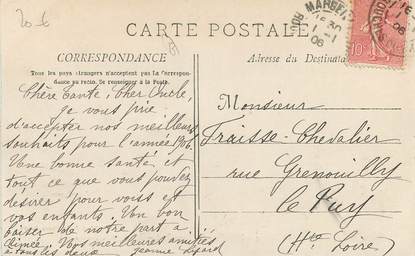 20 €
CARTE POSTALE
CORRESPONDANCE
Adresse du Destinata
Tous les pays étrangers n'acceptent pas la Correspon-
dance au recto. Se renseigner à la Poste.
Chère Tante, Cher Oncle,
je vous prie
d'accepter nos meilleurs
souhaits pour l'année 1906.
Une bonne santé et
tout ce que vous pouvez
désirer pour vous et
vos enfants. Un bon
baiser de notre part à
Aimée. Nos meilleures amitiés
à tous les deux Jeanne
Monsieur
Fraisse-Chevalier
rue Grenouilly
le Puy
(Hte Loire)
MARSEI
1-1
06
10